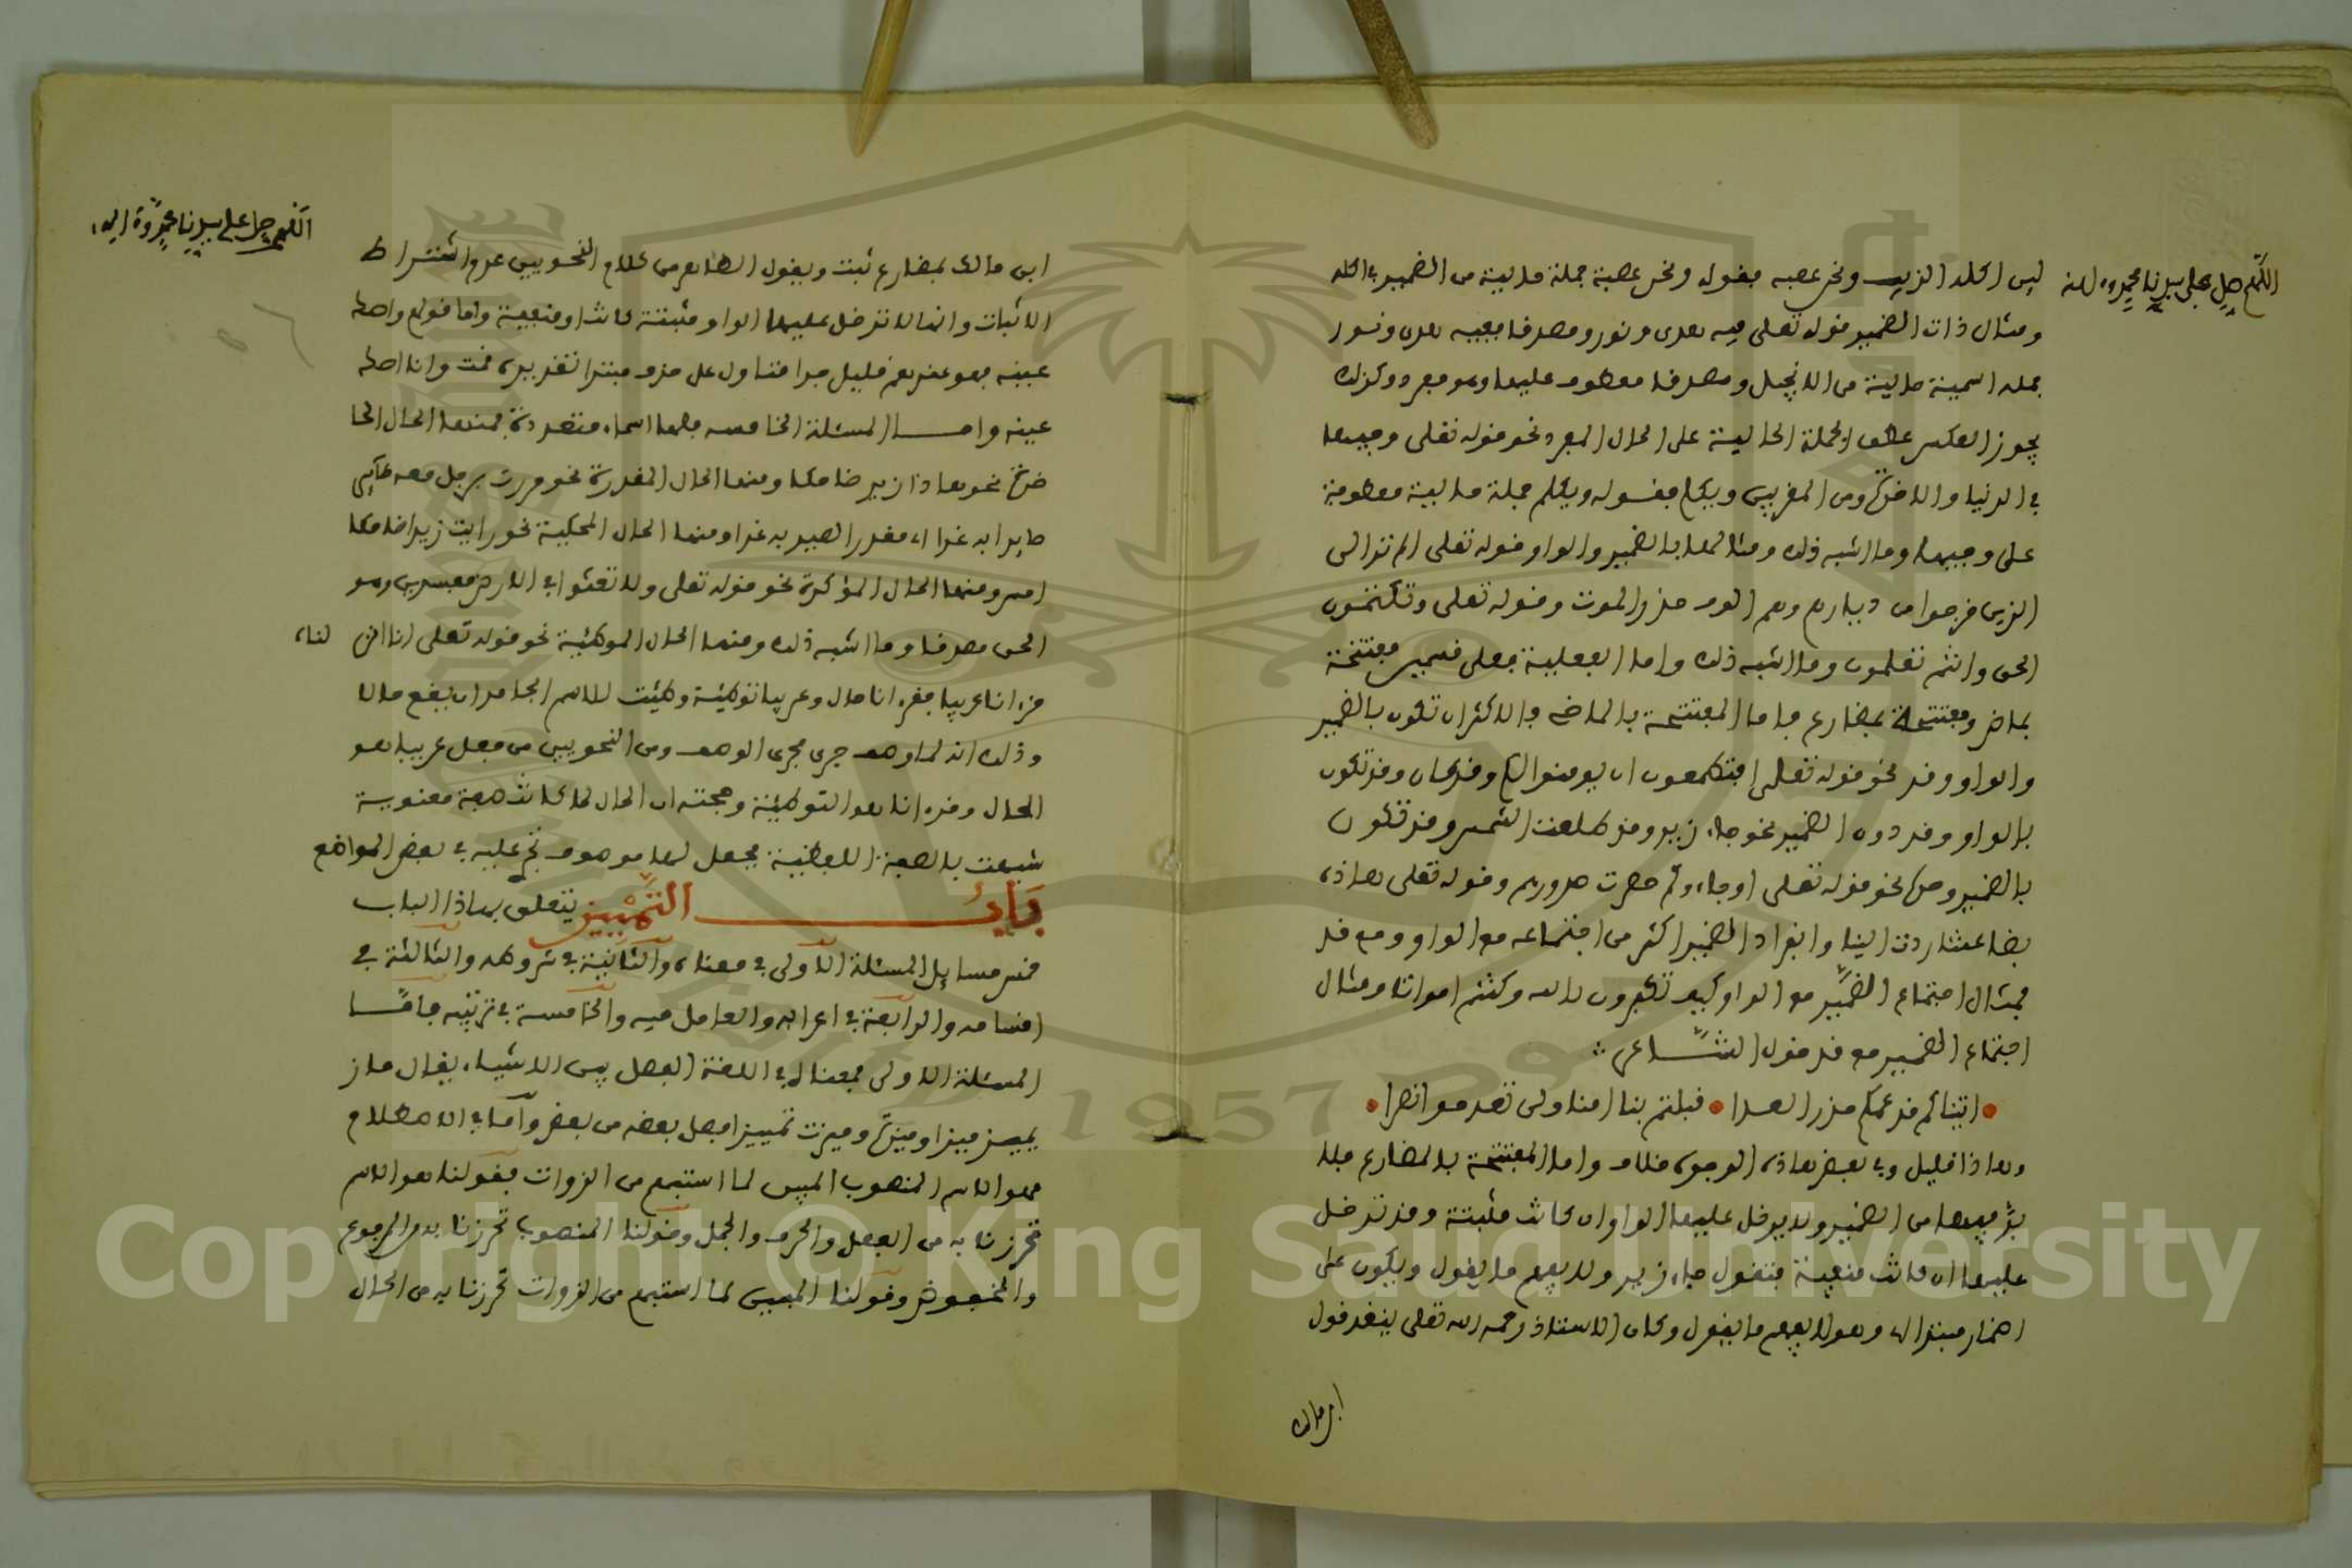 ليس اكله الذيب ونحن عصبة فقوله ونحن عصبة جملة حالية من الضمير في اكله
ومثال ذات الضمير قوله تعلى فيه هدى ونور ومصدقا ففيه هدى ونور
جملة اسمية حالية من الانجيل ومصدقا معطوف عليها وهو مفرد وكذلك
يجوز العكس عطف الجملة الحالية على الحال المفرد نحو قوله تعلى وجيها
في الدنيا والاخرة ومن المقربين ويكلم فقوله ويكلم جملة حالية معطوفة
على وجيها وما اشبه ذلك ومثالها بالضمير والواو قوله تعلى الم تر الى
الذين خرجوا من ديارهم وهم الوف حذر الموت وقوله تعلى وتكتمون
الحق وانتم تعلمون وما اشبه ذلك واما الفعلية فعلى قسمين مفتتحة
بماض ومفتتحة بمضارع فاما المفتتحة بالماضي فالاكثر ان تكون بالضمير
والواو وقد نحو قوله تعلى افتطمعون ان يومنوا لكم وقد كان وقد تكون
بالواو وقد دون الضمير نحو جاء زيد وقد طلعت الشمس وقد تكون
بالضمير وحده نحو قوله تعلى اوجاءوكم حصرت صدورهم وقوله تعلى هاذه
بضاعتنا ردت الينا وانفراد الضمير اكثر من اجتماعه مع الواو ومع قد
فمثال اجتماع الضمير مع الواو كيف تكفرون بالله وكنتم امواتا ومثال
اجتماع الضمير مع قد قول الشاعر
اتيناكم قد عمكم حذر العدا فنلتم بنا امنا ولم تعدموا نصرا
وهاذا قليل وفي بعض هاذه الوجوه خلاف واما المفتتحة بالمضارع فلا
بد فيها من الضمير ولا يدخل عليها الواو ان كانت مثبتة وقد تدخل
عليها ان كانت منفية فتقول جاء زيد ولا يفهم ما يقول ويكون على
اضمار مبتدا اي وهو لا يفهم ما يقول وكان الاستاذ رحمه الله تعلى ينقد قول
ابن مالك
اللهم صل على سيدنا محمد وءاله
ابن مالك بمضارع ثبت ويقول الظاهر من كلام النحويين عدم اشتراط
الاثبات وانها لا تدخل عليها الواو مثبتة كانت او منفية واما قولهم واصك
عينه فهو عندهم قليل جدا متاول على حذف مبتدا تقديره قمت وانا اصك
عينه واما المسئلة الخامسة فلها اسماء متعددة فمنها الحال الحا
ضرة نحو هاذا زيد ضاحكا ومنها الحال المقدرة نحو مررت برجل معه صقر
صايدا به غدا اي مقدر الصيد به غدا ومنها الحال المحكية نحو رايت زيدا ضاحكا
امس ومنها الحال المؤكدة نحو قوله تعلى ولا تعثوا في الارض مفسدين وهو
الحق مصدقا وما اشبه ذلك ومنها الحال الموطئة نحو قوله تعلى انا انزلناه
قرءانا عربيا فقرءانا حال وعربيا توطئة وطئت للاسم الجامد ان يقع حالا
وذلك انه لما وصف جرى مجرى الوصف ومن النحويين من جعل عربيا هو
الحال وقرءانا هو التوطئة وحجته ان الحال لما كانت صفة معنوية
شبهت بالصفة اللفظية فجعل لها موصوف تجر عليه في بعض المواضع
باب التمييز يتعلق بهاذا الباب
خمس مسايل المسئلة الاولى في معناه والثانية في شروطه والثالثة في
اقسامه والرابعة في اعرابه والعامل فيه والخامسة في ترتيبه فامّا
المسئلة الاولى فمعناه في اللغة الفصل بين الاشياء يقال ماز
يميز ميزا وميزة وميزت تمييزا فصل بعضه من بعض وامّا في الاصطلاح
فهو الاسم المنصوب المبين لما استبهم من الذوات فقولنا هو الاسم
تحرزنا به من الفعل والحرف والجمل وقولنا المنصوب تحرزنا به من المرفوع
والمخفوض وقولنا المبين لما استبهم من الذوات تحرزنا به من الحال
اللهم صل على سيدنا محمد وءاله
Copyright © King Saud University
1957